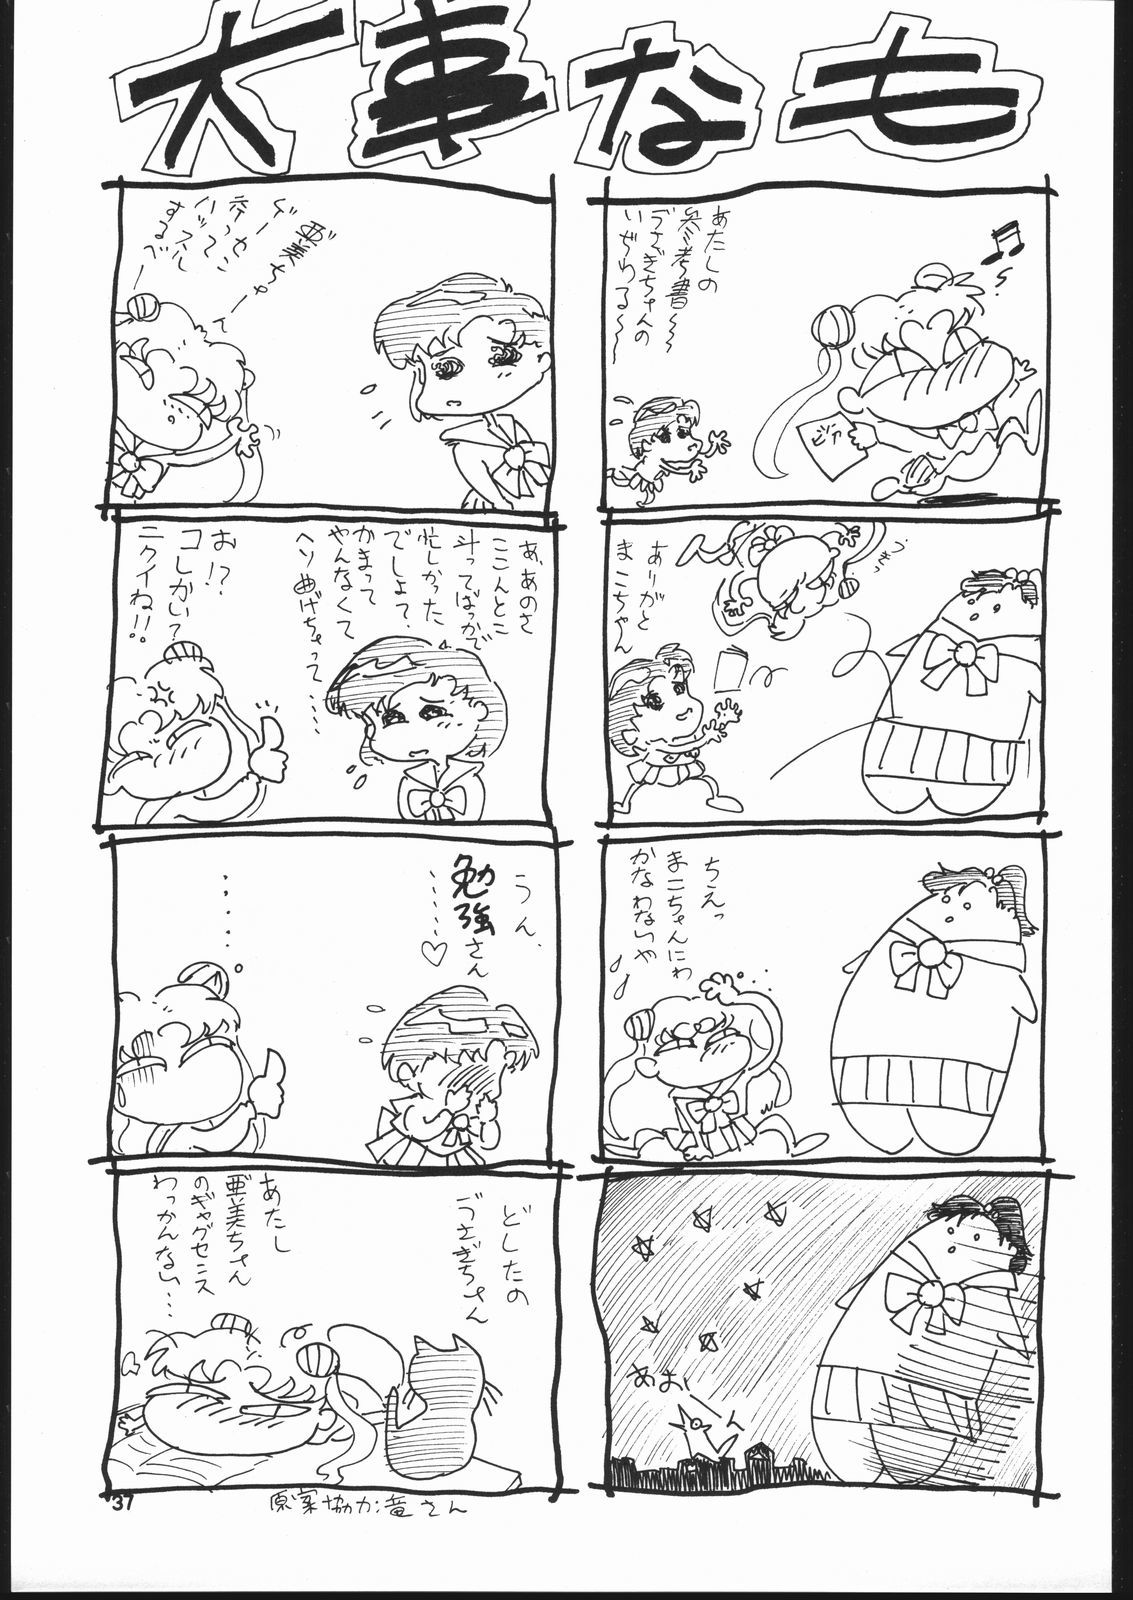 大事なも
あたしの
参考書〜
うさぎちゃんの
いぢわる〜〜
ありがと
まこちゃん
ちえっ
まこちゃんにわ
かなわないや
♪
亜美ちゃー
ハッスル
するべー
あ、あのさ
ここんとこ
斗ってばっかで
忙しかった
でしょ?
かまって
やんなくて
ヘソ曲げちゃって……
お!?
コレかい?
ニクイね!!
うん、
勉強さん
……♡
……
どしたの
うさぎちゃん
あたし
亜美ちゃん
のギャグセンス
わっかんない…
37
原案協力:竜さん